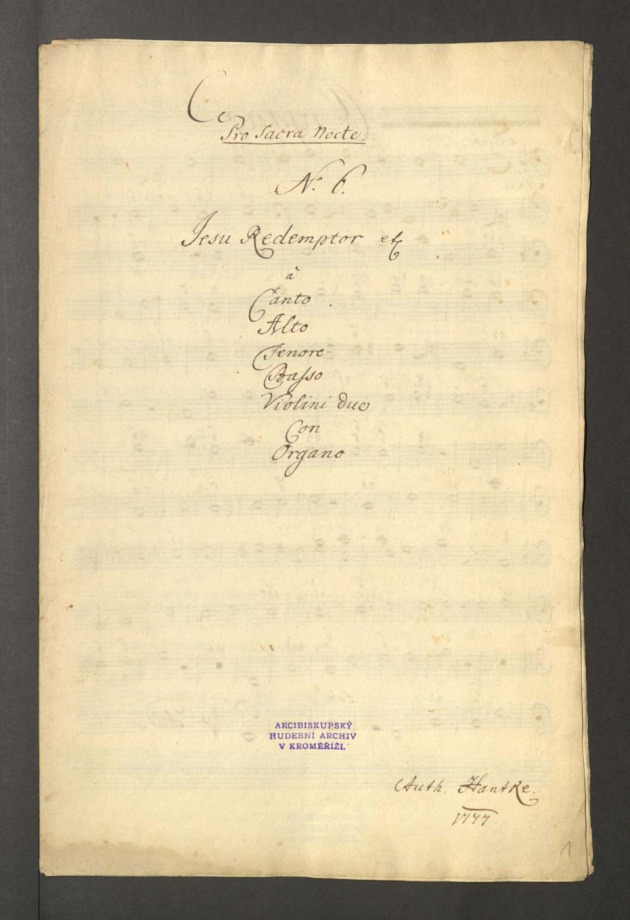 C
Pro Sacra Nocte.
No. 6.
Jesu Redemptor etc
à
Canto.
Alto
Tenore
Basso
Violini duo
Con
Organo
ARCIBISKUPSKÝ
HUDEBNÍ ARCHIV
V KROMĚŘÍŽI.
Auth. Hantke.
1777
1